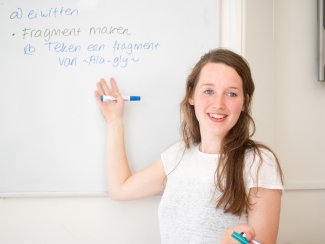 a) eiwitten
• Fragment maken
b) Teken een fragment
van ~Ala-gly~